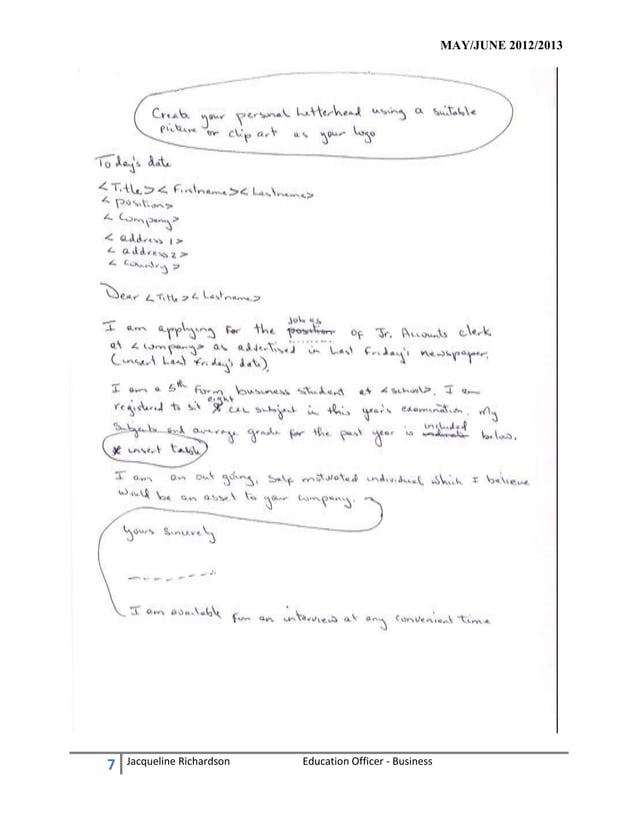 MAY/JUNE 2012/2013
Create your personal Letterhead using a suitable
picture or clip art as your logo
Today's date
<Title><Firstname><Lastname>
<position>
<Company>
<address 1>
<address 2>
<country>
Dear <Title><Lastname>
job as
I am applying for the position of Jr. Accounts clerk
at <company> as advertised in last Friday's newspaper.
(insert Last Friday's date)
I am a 5th Form business student at <school>. I am
eight
registered to sit 8 CXC subject in this year's examination. My
included
subjects and average grade for the past year is indicate below.
* insert table
I am an out going, self motivated individual which I believe
would be an asset to your company.
Yours Sincerely
I am available for an interview at any convenient time
7 Jacqueline Richardson Education Officer - Business